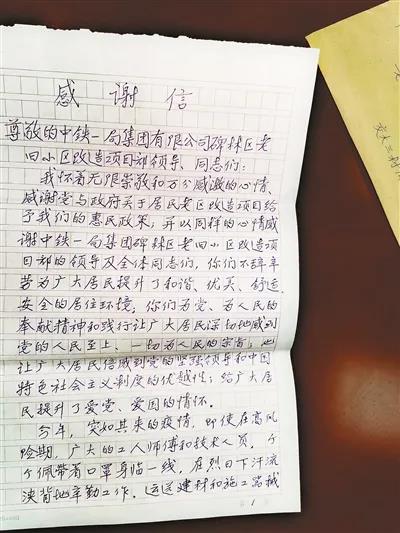 感谢信
尊敬的中铁一局集团有限公司碑林区老
旧小区改造项目部领导、同志们：
我怀着无限崇敬和万个感激的心情、
感谢党与政府关于居民老区改造项目给
予我们的惠民政策；并以同样的心情感
谢中铁一局集团碑林区老旧小区改造项
目部的领导及全体同志们，你们不辞辛
苦为广大居民提升了和谐、优美、舒适、
安全的居住环境，你们为党、为人民的
奉献精神和践行让广大居民深切地感到
党的人民至上、一切为人民的宗旨；也
让广大居民倍感到党的坚强领导和中国
特色社会主义制度的优越性；给广大居
民提升了爱党、爱国的情怀。
今年，突如其来的疫情，即使在高风
险期，广大的工人师傅和技术人员，个
个佩带着口罩身临一线，在烈日下汗流
浃背地辛勤工作，运送建材和施工器械
1
交大三村